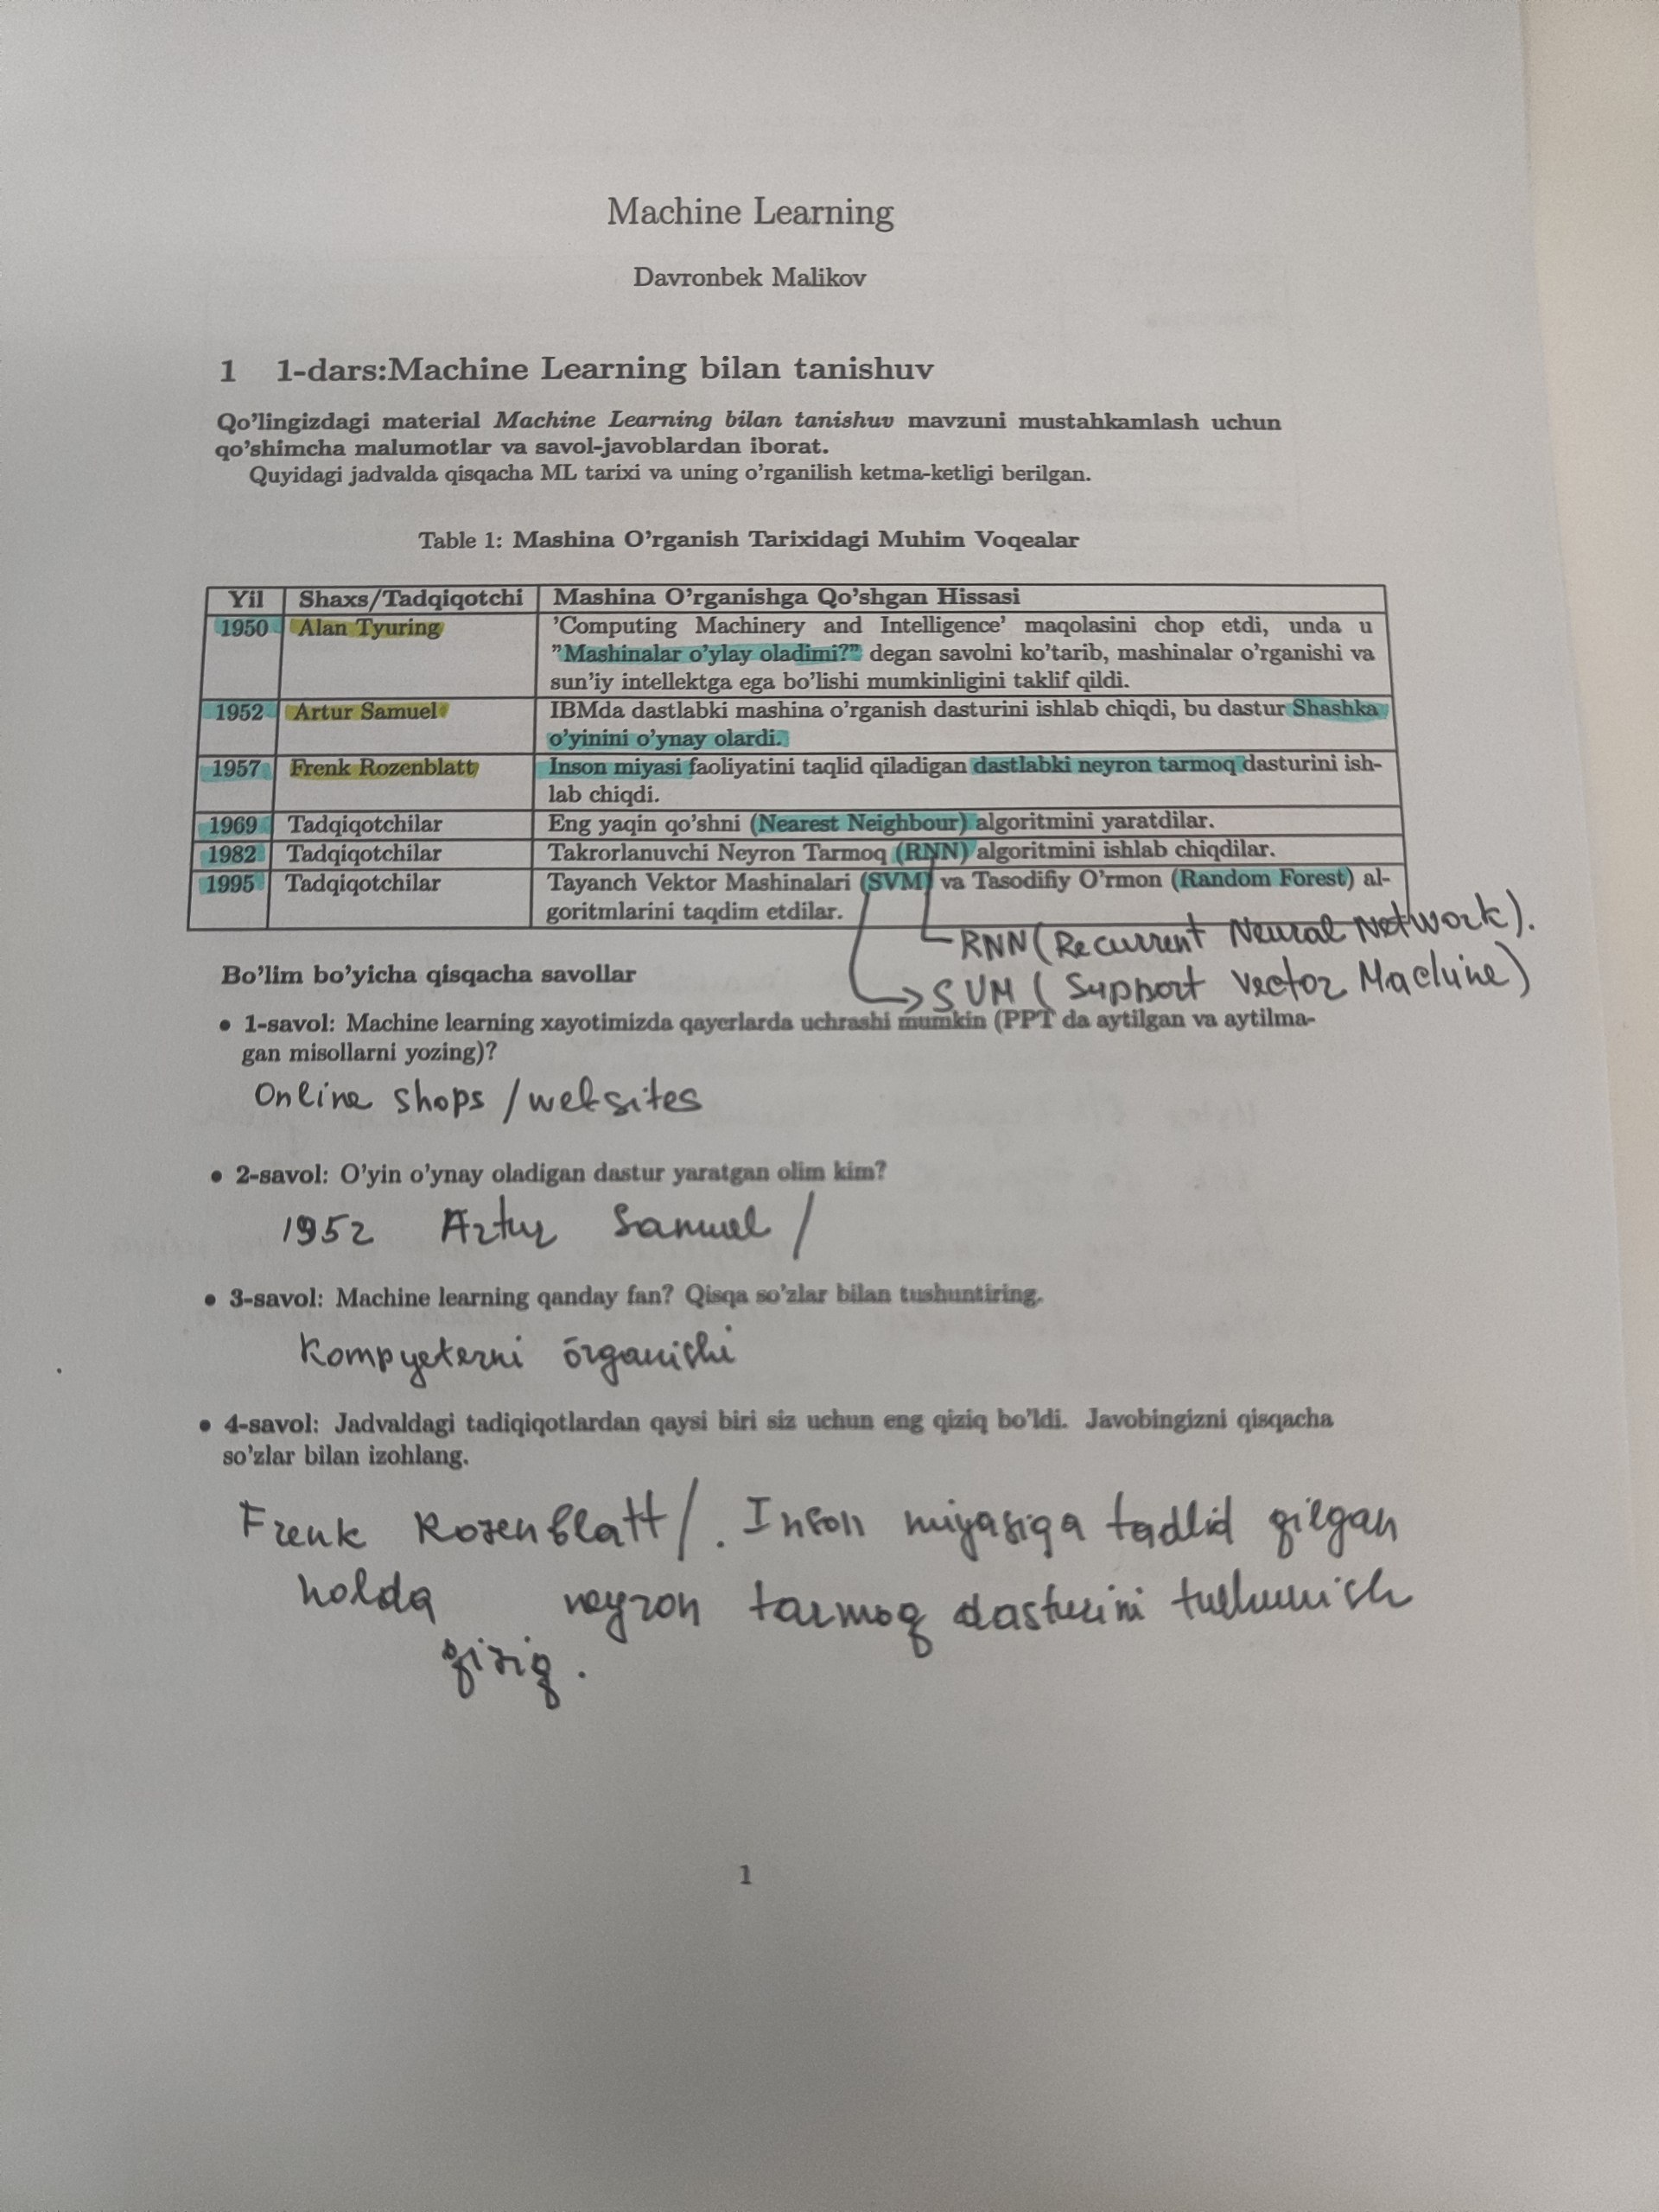 Machine Learning
Davronbek Malikov
1 1-dars:Machine Learning bilan tanishuv
Qo'lingizdagi material Machine Learning bilan tanishuv mavzuni mustahkamlash uchun
qo'shimcha malumotlar va savol-javoblardan iborat.
Quyidagi jadvalda qisqacha ML tarixi va uning o'rganilish ketma-ketligi berilgan.
Table 1: Mashina O'rganish Tarixidagi Muhim Voqealar
Yil Shaxs/Tadqiqotchi Mashina O'rganishga Qo'shgan Hissasi
1950 Alan Tyuring 'Computing Machinery and Intelligence' maqolasini chop etdi, unda u
"Mashinalar o'ylay oladimi?" degan savolni ko'tarib, mashinalar o'rganishi va
sun'iy intellektga ega bo'lishi mumkinligini taklif qildi.
1952 Artur Samuel IBMda dastlabki mashina o'rganish dasturini ishlab chiqdi, bu dastur Shashka
o'yinini o'ynay olardi.
1957 Frenk Rozenblatt Inson miyasi faoliyatini taqlid qiladigan dastlabki neyron tarmoq dasturini ish-
lab chiqdi.
1969 Tadqiqotchilar Eng yaqin qo'shni (Nearest Neighbour) algoritmini yaratdilar.
1982 Tadqiqotchilar Takrorlanuvchi Neyron Tarmoq (RNN) algoritmini ishlab chiqdilar.
1995 Tadqiqotchilar Tayanch Vektor Mashinalari (SVM) va Tasodifiy O'rmon (Random Forest) al-
goritmlarini taqdim etdilar.
RNN (Recurrent Neural Network).
SVM (Support Vector Machine)
Bo'lim bo'yicha qisqacha savollar
• 1-savol: Machine learning xayotimizda qayerlarda uchrashi mumkin (PPT da aytilgan va aytilma-
gan misollarni yozing)?
Online shops / websites
• 2-savol: O'yin o'ynay oladigan dastur yaratgan olim kim?
1952 Artur Samuel /
• 3-savol: Machine learning qanday fan? Qisqa so'zlar bilan tushuntiring.
Kompyeterni õrganishi
• 4-savol: Jadvaldagi tadiqiqotlardan qaysi biri siz uchun eng qiziq bo'ldi. Javobingizni qisqacha
so'zlar bilan izohlang.
Frenk Rozenblatt /. Inson miyasiga tadlid qilgan
holda neyron tarmoq dasturini
qiziq.
1